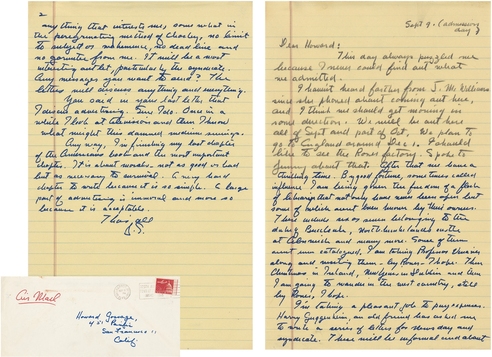 2
anything that interests me, somewhat in
the peregrinating method of Chorley, no limit
to subject or nohemence, no dead line and
no guarantee from me. It will be a most
interesting outlet, particularly the syndicate.
Any messages you want to send? The
letters will discuss anything and everything.
You said in your last letter that
I discuss advertising. Sure I do. Once in a
while I look at television and then I know
what might this damned medium swings.
Any way, I'm finishing my last chapter
of the Americans book and the most important
chapter. It is about words. not as good or bad
but as necessary to survival. A very hard
chapter to write because it is so simple. A large
part of advertising is immoral and more so
because it is acceptable.
That's all
J.S.
Air Mail
Howard Gossage,
451 Pacific
San Francisco 11
Calif.
Sept 9. (admission
day)
Dear Howard:
This day always puzzled me
because I never could find out what
we admitted.
I haven't heard further from J. McWilliams
since she phoned about coming out here,
and I think we should get moving in
some direction. We will be out here
all of Sept and part of Oct. We plan to
go to England around Dec 1. I should
like to see the Rover factory. Spoke to
Jimmy about that. After that we have a
thrilling time. By good fortune, sometimes called
influence I am being given the freedom of a flock
of libraries that not only have never been open but
some of which aren't even known by their owners.
These include
and many more. Some of them
aren't even catalogued. I am taking Professor Vinaver
along and visiting them - by Rover. I hope. Then
Christmas in Ireland, New Years in Dublin and then
I am going to wander in the west country, still
by Rover, I hope.
I'm taking a pleasant job to pay expenses.
Harry Guggenheim, an old friend has asked me
to write a series of letters for Newsday and
syndicate. These will be informal and about